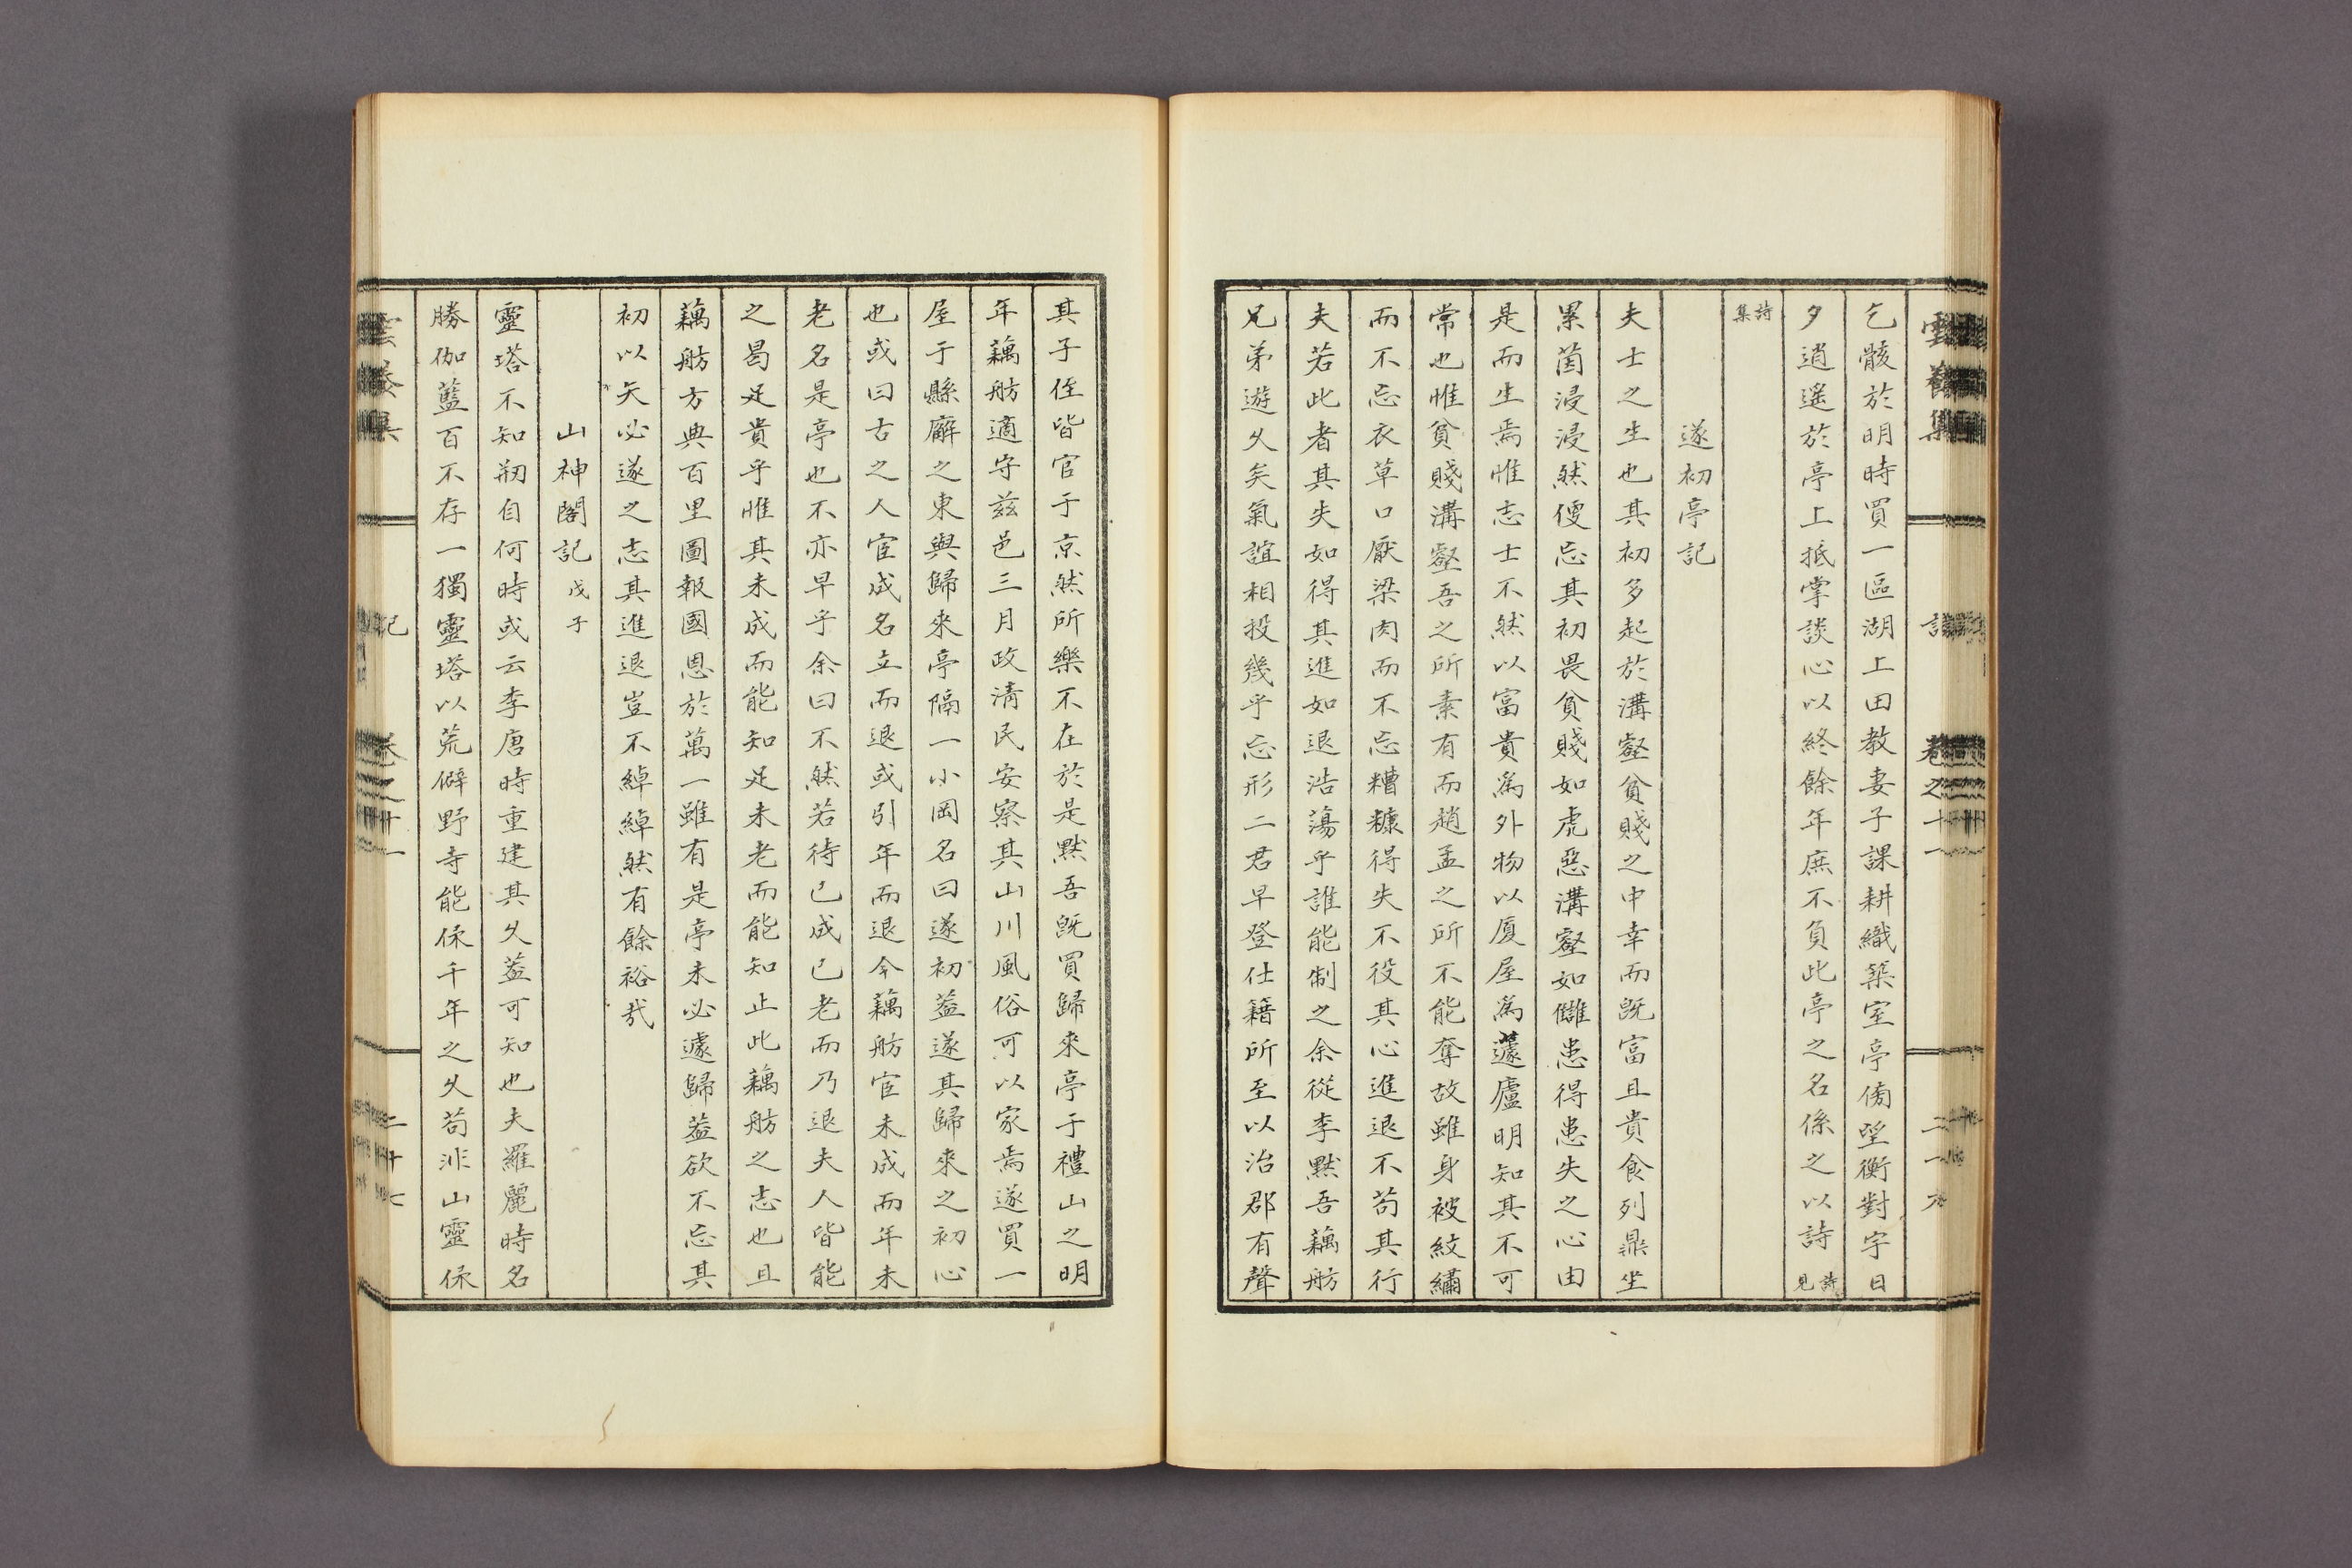 乞骸於明時買一區湖上田教妻子課耕織築室亭傍望衡對宇日
夕逍遥於亭上抵掌談心以終餘年庶不負此亭之名係之以詩 詩見
詩集
遂初亭記
夫士之生也其初多起於溝壑貧賤之中幸而旣富且貴食列鼎坐
累茵浸浸然便忘其初畏貧賤如虎惡溝壑如讎患得患失之心由
是而生焉惟志士不然以富貴爲外物以厦屋爲蘧廬明知其不可
常也惟貧賤溝壑吾之所素有而趙孟之所不能奪故雖身被紋繡
而不忘衣草口厭梁肉而不忘糟糠得失不役其心進退不苟其行
夫若此者其失如得其進如退浩蕩乎誰能制之余從李默吾藕舫
兄弟遊久矣氣誼相投幾乎忘形二君早登仕籍所至以治郡有聲
其子侄皆官于京然所樂不在於是默吾旣買歸來亭于禮山之明
年藕舫適守茲邑三月政淸民安察其山川風俗可以家焉遂買一
屋于縣廨之東與歸來亭隔一小岡名曰遂初葢遂其歸來之初心
也或曰古之人宦成名立而退或引年而退今藕舫宦未成而年未
老名是亭也不亦早乎余曰不然若待已成已老而乃退夫人皆能
之曷足貴乎惟其未成而能知足未老而能知止此藕舫之志也且
藕舫方典百里圖報國恩於萬一雖有是亭未必遽歸葢欲不忘其
初以矢必遂之志其進退豈不綽綽然有餘裕哉
山神閣記 戊子
靈塔不知刱自何時或云李唐時重建其久葢可知也夫羅麗時名
勝伽藍百不存一獨靈塔以荒僻野寺能保千年之久苟非山靈保
記
二十七